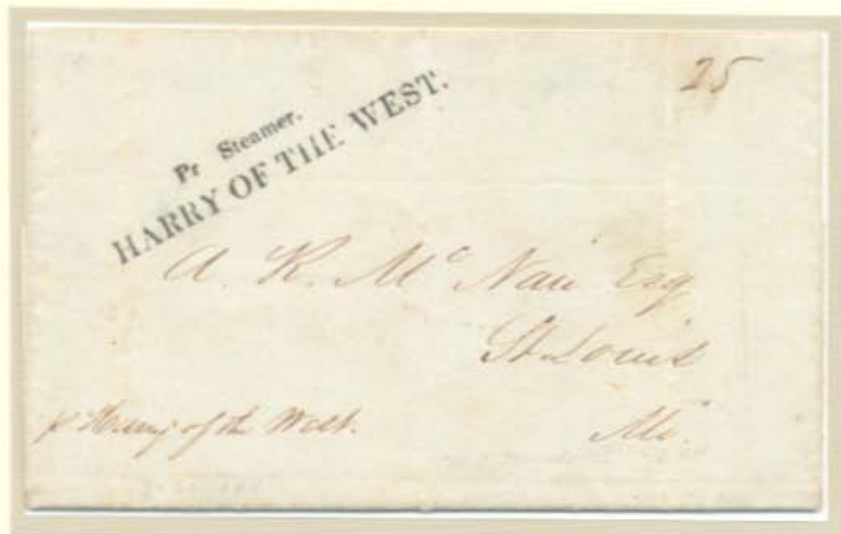 25
Pr Steamer.
HARRY OF THE WEST.
A. K. Mc Nair Esq
St Louis
Mo.
pr Harry of the West.